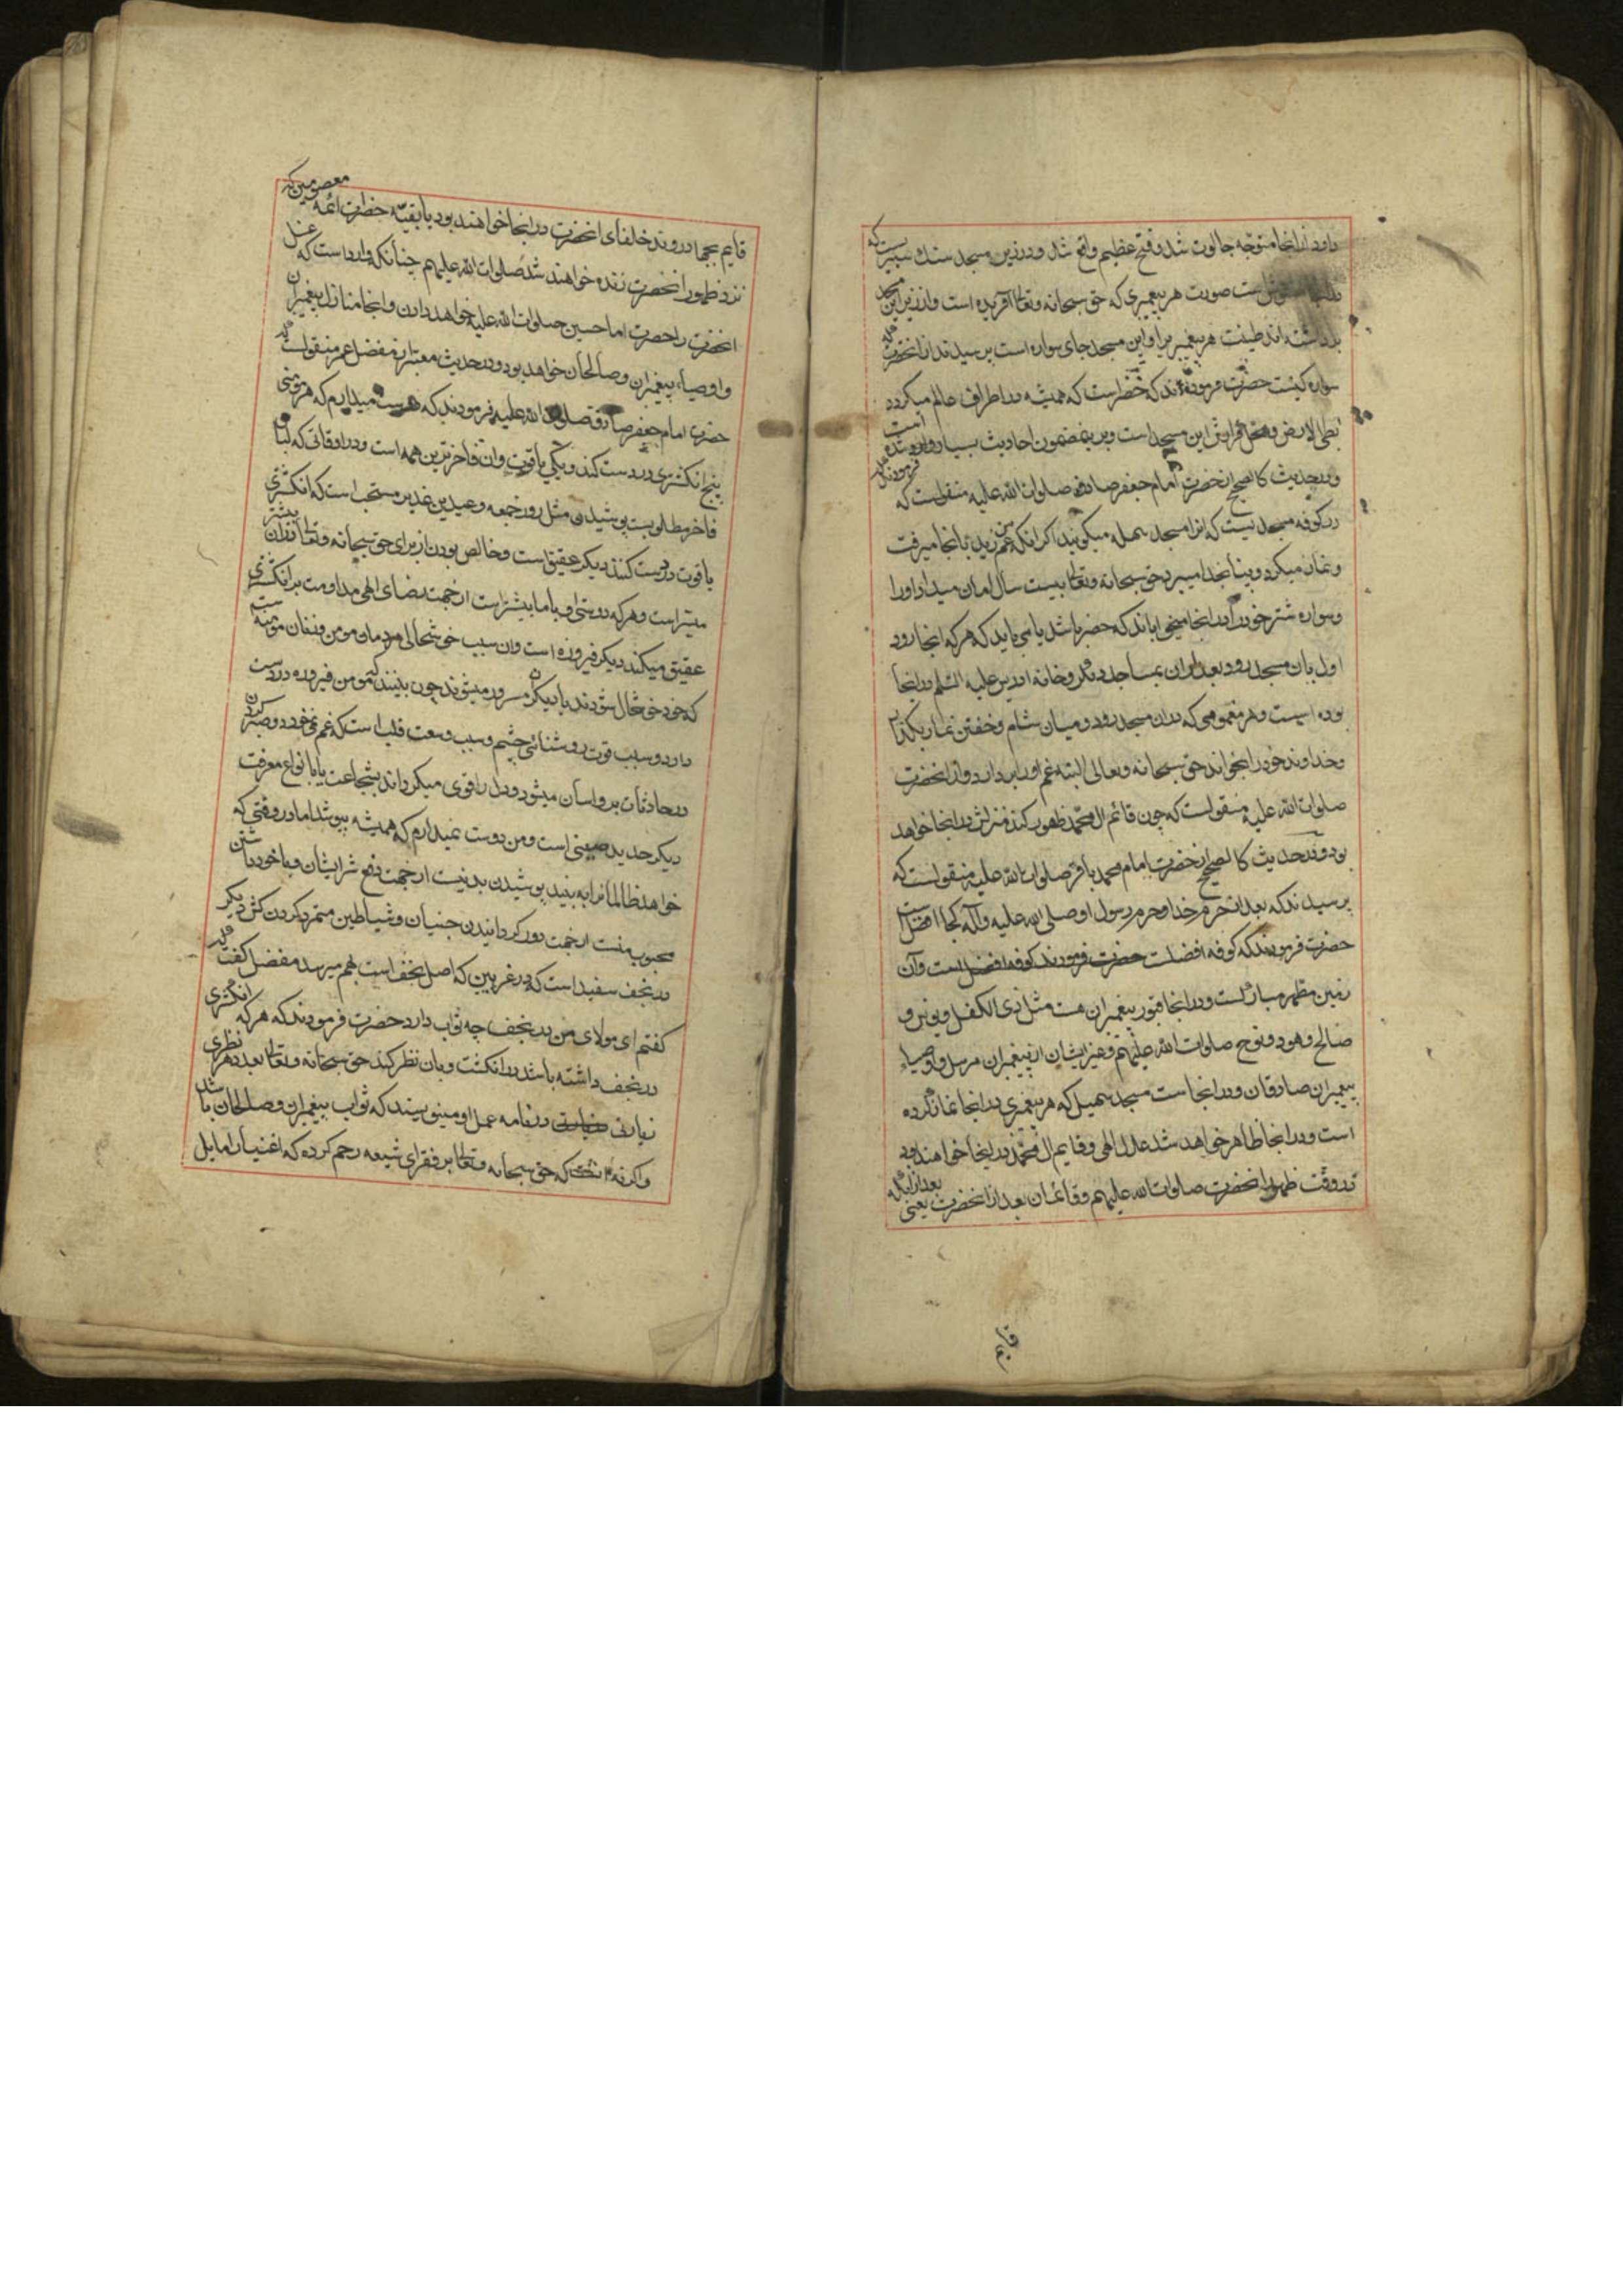 داود از انجا متوجه جالوت شد و فتح عظیم واقع شد و در زیر مسجد سنك سبزیست که
است صورت هر پیغمبری که حق سبحانه وتعالی افریده است واز زیر این مسجد
برداشته اند طینت هر پیغمبریرا و این مسجد جای سواره است پرسیدند از انحضرت که
سواره کیست حضرت فرموده اند که خضر است که همیشه در اطراف عالم میکردد
بطی الارض و محل قرارش این مسجد است و برین مضمون احادیث بسیار وارد شده است
و در حدیث کالصحیح از حضرت امام جعفر صادق صلوات الله علیه منقولست که فرمودند که
در کوفه مسجدیست که انرا مسجد سهله میکویند اکر انکه عم من زید بانجا میرفت
و نماز میکرد و پناه بخدا میبرد حق سبحانه وتعالی بیست سال امان میداد اورا
و سواره شتر خود را در انجا میخواباند که خضر باشد یا می باید که هر که انجا رود
اول بان مسجد رود بعد از ان بمساجد دیکر و خانه ادریس علیه السلم در انجا
بوده است و هر مغمومی که در ان مسجد رود و میان شام و خفتن نماز بکذارد
و خداوند خود را بخواند حق سبحانه وتعالی البته غم اورا بردارد و از انحضرت
صلوات الله علیه منقولست که چون قائم ال محمد ظهور کند منزلش در انجا خواهد
بود و در حدیث کالصحیح از حضرت امام محمد باقر صلوات الله علیه منقولست که
پرسیدند که بعد از حرم خدا و حرم رسول او صلی الله علیه وآله کجا افضل است
حضرت فرمودند که کوفه افضلست حضرت فرمودند کوفه افضل است وآن
زمین مطهر مبارکست و در انجا قبور پیغمبران هست مثل ذی الکفل و یونس و
صالح و هود و نوح صلوات الله علیهم و غیر ایشان از پیغمبران مرسل و اوصیاء
پیغمبران صادقان و در انجاست مسجد سهیل که هر پیغمبری در انجا نماز کرده
است و در انجا ظاهر خواهد شد عدل الهی و قایم ال محمد در اینجا خواهند بود
در وقت ظهور انحضرت صلوات الله علیهم و قائمان بعد از انحضرت یعنی بعد از انکه
قایم
قایم بجهاد روند خلفای انحضرت در انجا خواهند بود یا بقیه حضرات ائمه معصومین که
نزد ظهور انحضرت زنده خواهند شد صلوات الله علیهم چنانکه وارد است که غسل
انحضرت را حضرت اما حسین صلوات الله علیه خواهد دادن و انجا منازل پیغمبران
و اوصیاء پیغمبران و صالحان خواهد بود و در حدیث معتبر از مفضل عمر منقولست که
حضرت امام جعفر صادق صلوات الله علیه فرمودند که دوست میدارم که هر مؤمنی
پنج انکشتری در دست کند و یکی یاقوت وان فاخرترین همه است و در اوقاتی که لباس
فاخر مطلوبست پوشیدن مثل روز جمعه و عیدین و غدیر مستحب است که انکشتری
یاقوت در دست کنند دیکر عقیق است و خالص بودن از برای حق سبحانه وتعالی در ان بیشتر
میسر است و هر که دوستی او با ما بیشتر است از جهت رضای الهی مداومت بر انکشتری
عقیق میکند دیکر فیروزه است وان سبب خوشحالی مردمان مومن و زنان مؤمنه است
که خود خوشحال شوند یا دیکران مسرور میشوند چون بینند که مومن فیروزه در دست
دارد و سبب قوت روشنائی چشم و سبب وسعت قلب است که غم نمی خورد و صبر کردن
در حادثات برو اسان میشود و دل را قوی میکرداند بشجاعت یا بانواع معرفت
دیکر حدید صینی است و من دوست نمیدارم که همیشه بپوشد اما در وقتی که
خواهد ظالمانرا به بیند پوشیدن بد نیست از جهت دفع شر ایشان و با خود داشتن
محبوب منست از جهت دور کردانیدن جنیان و شیاطین متمرد کردن کش دیکر
در نجف سفید است که در غریین که اصل نجف است بهم میرسد مفضل کفت که
کفتم ای مولای من در نجف چه ثواب دارد حضرت فرمودند که هر که انکشتری
در نجف داشته باشد در انکشت و بان نظر کند حق سبحانه وتعالی بعدد هر نظری
زیارتی در نامه عمل او مینویسند که ثواب پیغمبران و صالحان باشد
واکر نه که حق سبحانه وتعالی بر فقرای شیعه رحم کرده که اغنیارا مایل